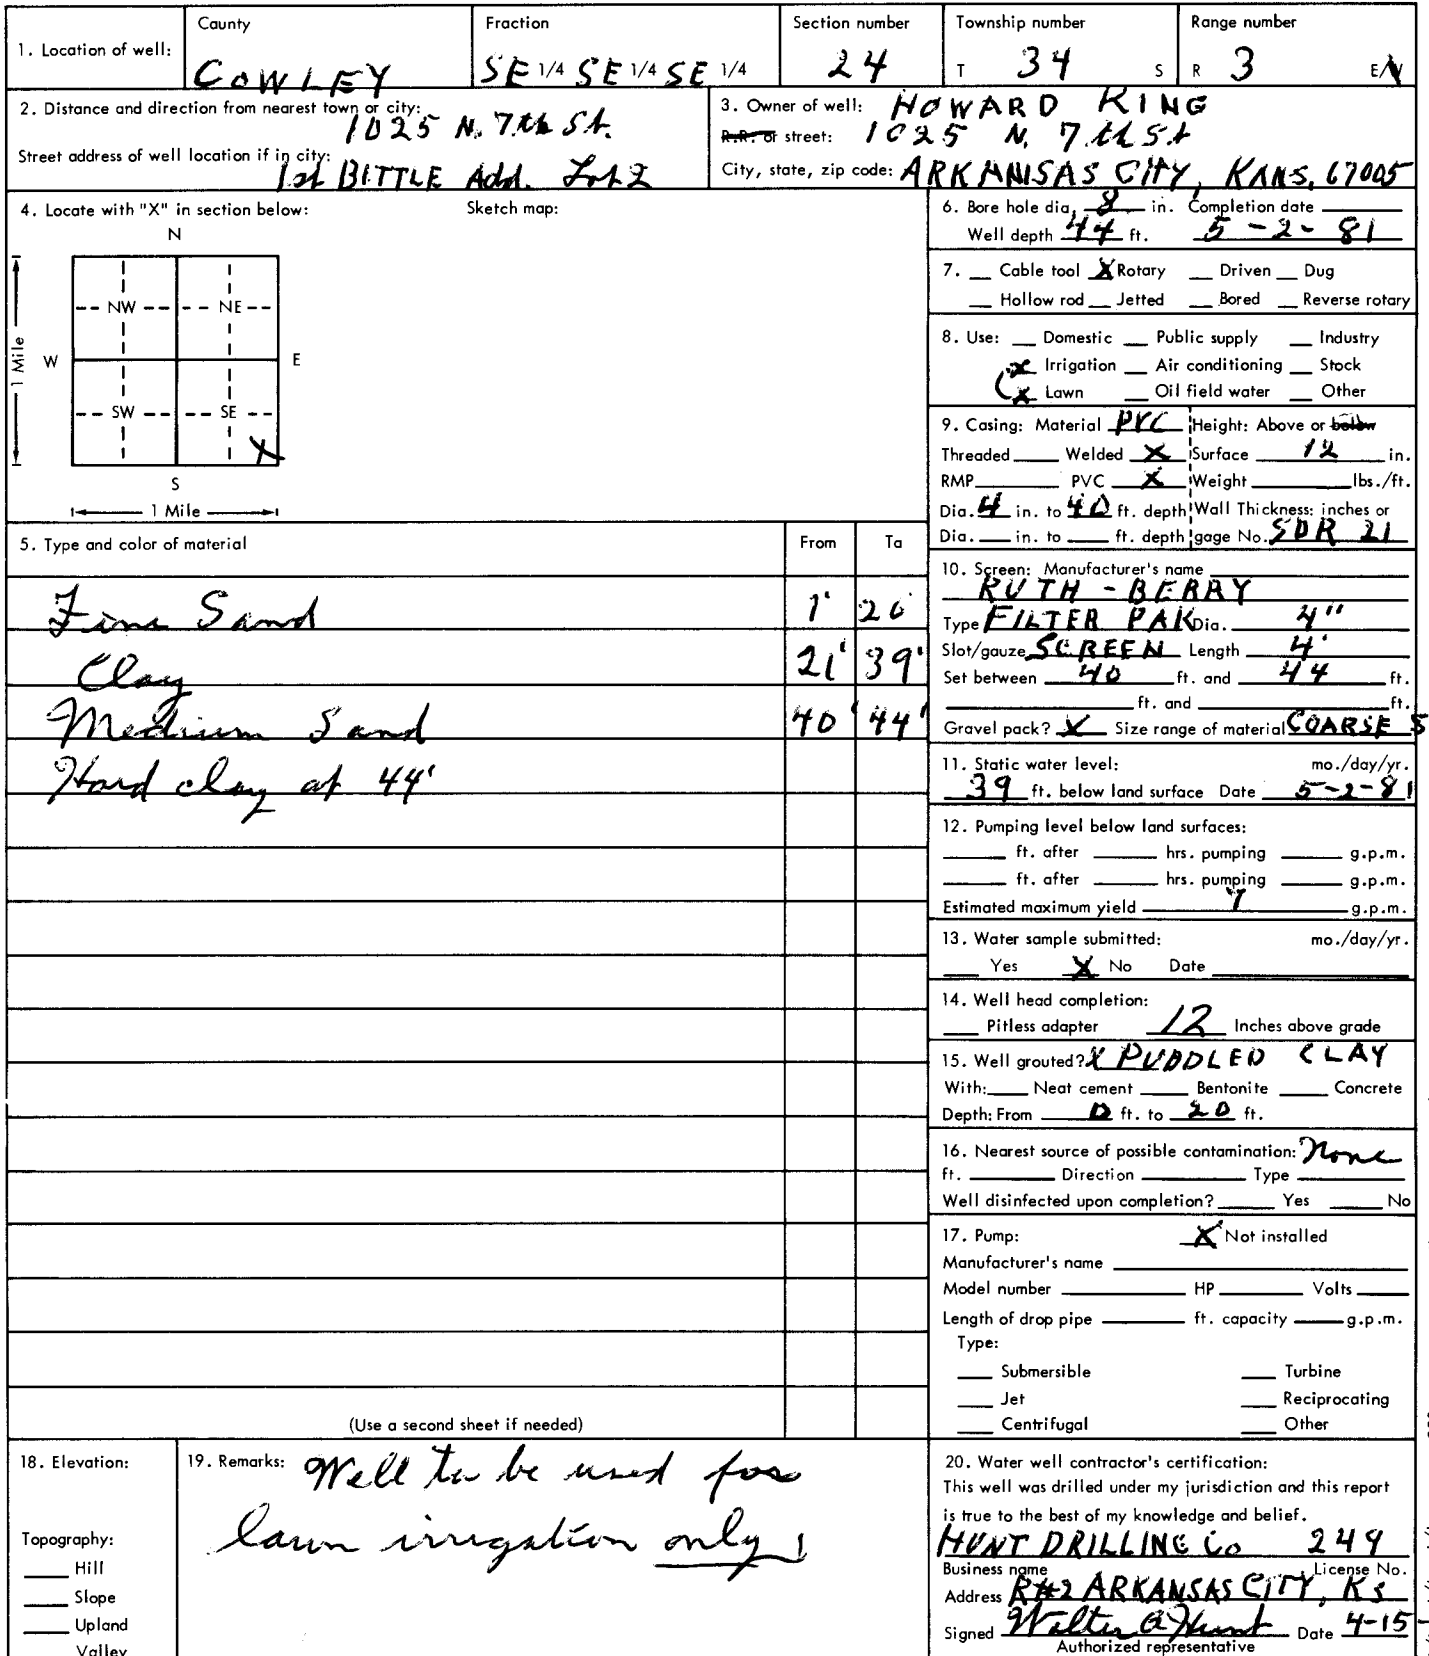 1. Location of well:
County
COWLEY
Fraction
SE 1/4 SE 1/4 SE 1/4
Section number
24
Township number
T 34 S
Range number
R 3 E/W
2. Distance and direction from nearest town or city:
1025 N. 7th St.
Street address of well location if in city:
1st BITTLE Add. Lot 2
3. Owner of well: HOWARD KING
R.R. or street: 1025 N. 7th St
City, state, zip code: ARKANSAS CITY, KANS. 67005
4. Locate with "X" in section below:
Sketch map:
N
NW NE
W E
1 Mile
SW SE
X
S
1 Mile
5. Type and color of material From To
Fine Sand 1' 20
Clay 21' 39'
Medium Sand 40' 44'
Hard clay at 44'
(Use a second sheet if needed)
6. Bore hole dia. 8 in. Completion date
Well depth 44 ft. 5-2-81
7. Cable tool X Rotary Driven Dug
Hollow rod Jetted Bored Reverse rotary
8. Use: Domestic Public supply Industry
x Irrigation Air conditioning Stock
x Lawn Oil field water Other
9. Casing: Material PVC Height: Above or below
Threaded Welded X Surface 12 in.
RMP PVC X Weight lbs./ft.
Dia. 4 in. to 40 ft. depth Wall Thickness: inches or
Dia. in. to ft. depth gage No. SDR 21
10. Screen: Manufacturer's name
RUTH - BERRY
Type FILTER PAK Dia. 4"
Slot/gauze SCREEN Length 4'
Set between 40 ft. and 44 ft.
ft. and ft.
Gravel pack? X Size range of material COARSE S
11. Static water level: mo./day/yr.
39 ft. below land surface Date 5-2-81
12. Pumping level below land surfaces:
ft. after hrs. pumping g.p.m.
ft. after hrs. pumping g.p.m.
Estimated maximum yield g.p.m.
13. Water sample submitted: mo./day/yr.
Yes X No Date
14. Well head completion:
Pitless adapter 12 Inches above grade
15. Well grouted? X PUDDLED CLAY
With: Neat cement Bentonite Concrete
Depth: From 0 ft. to 20 ft.
16. Nearest source of possible contamination: None
ft. Direction Type
Well disinfected upon completion? Yes No
17. Pump: X Not installed
Manufacturer's name
Model number HP Volts
Length of drop pipe ft. capacity g.p.m.
Type:
Submersible Turbine
Jet Reciprocating
Centrifugal Other
18. Elevation:
Topography:
Hill
Slope
Upland
Valley
19. Remarks: Well to be used for
lawn irrigation only!
20. Water well contractor's certification:
This well was drilled under my jurisdiction and this report
is true to the best of my knowledge and belief.
HUNT DRILLING Co 249
Business name License No.
Address R#2 ARKANSAS CITY, KS
Signed Walter A Hunt Date 4-15-
Authorized representative